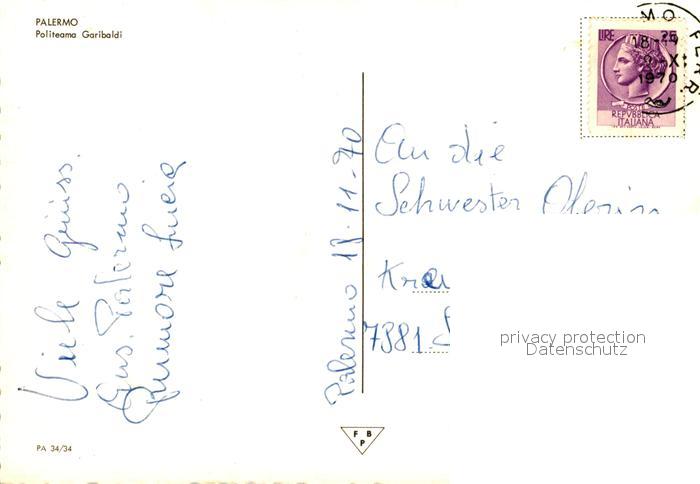 PALERMO
Politeama Garibaldi
MO FERR.
18-
-XI
1970
LIRE 25
POSTE
REPVBBLICA
ITALIANA
Viele Grüss.
Aus. Palermo
Rumore Lucia
Palermo 18-11-70
An die
Schwester Oberin
7381
privacy protection
Datenschutz
PA 34/34
F B
P